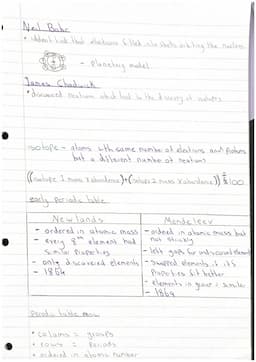 Neil Bohr
• identified that electrons fitted into shells orbiting the nucleus
- Planetary model
James Chadwick
• discovered neutrons which lead to the discovery of isotopes
isotope - atoms with same number of electrons and protons
but a different number of neutrons
((isotope 1 mass x abundance) + (isotope 2 mass x abundance)) ÷ 100
early periodic table
Newlands
- ordered in atomic mass
- every 8th element had
similar properties
- only discovered elements
- 1864
Mendeleev
- ordered in atomic mass but
not strictly
- left gaps for undiscovered elements
- swapped elements if its
properties fit better
- elements in group = similar
- 1869
Periodic table now
• columns = groups
• rows = periods
• ordered in atomic number